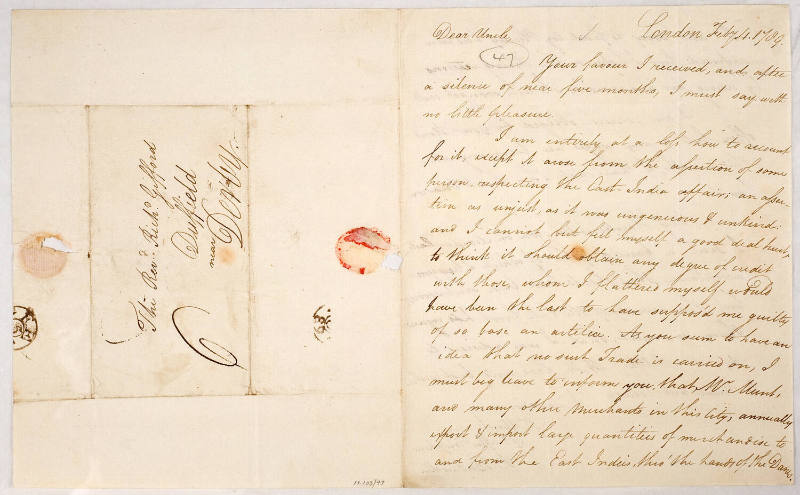 The Revd. Richd Gifford
Duffield
near Derby.
6
London Feby 4. 1789.
Dear Uncle
47
Your favour I received, and after
a silence of near five months, I must say with
no little pleasure.
I am entirely at a loss how to account
for it, except it arose from the assertion of some
person, respecting the East-India affair; an asser-
tion as unjust, as it was ungenerous & unkind:
and I cannot but feel myself a good deal hurt,
to think it should obtain any degree of credit
with those, whom I flattered myself would
have been the last to have suppos'd me guilty
of so base an artifice. As you seem to have an
idea that no such Trade is carried on, I
must beg leave to inform you, that Mr. Munt,
and many other Merchants in this City, annually
export & import large quantities of merchandise to
and from the East Indies, thro' the hands of the Danes.